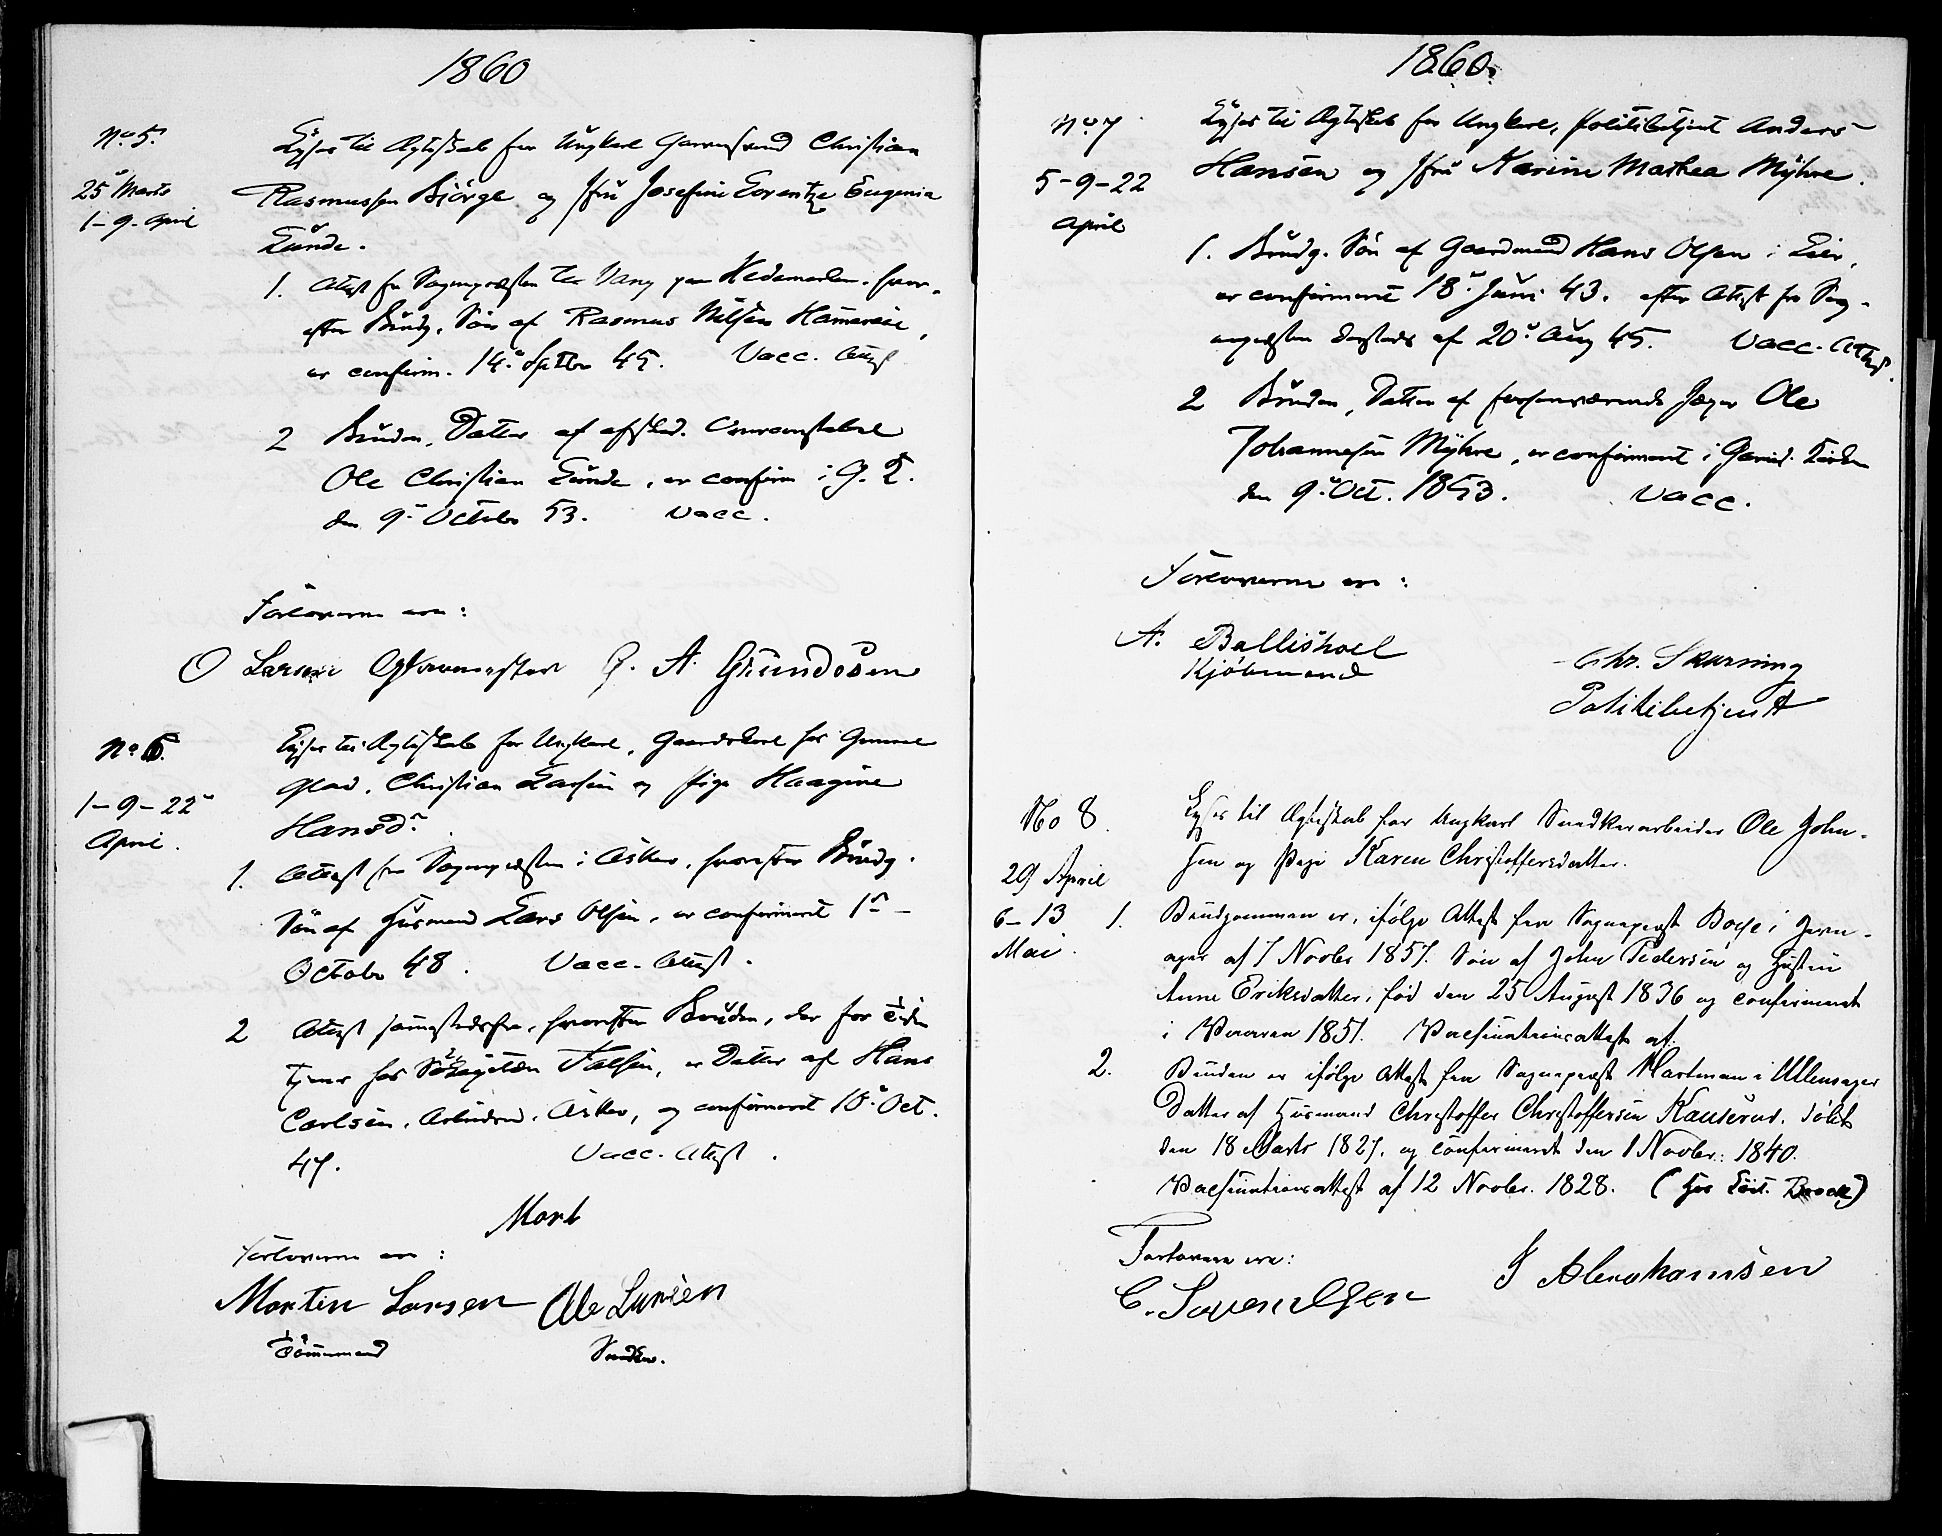 1860
No 5.
25 Marts
1-9. April
Lyses til Ægteskab for Ungkarl Garversvend Christian
Rasmussen Biörge og Jfru Josefine Lorentze Eugenia
Lünde.
1. Attest fra Sognepræsten til Vang paa Hedemarken, hvor-
efter Brudg. Sön af Rasmus Nilsen Hamereie,
er confirm. 14 Septbr 45. Vacc. Attest
2 Bruden, Datter af afsked.
Ole Christian Lünde, er confirm i G. K.
den 9 October 53. Vacc.
Forloverne ere:
O Larsen Garvermester A. Gundersen
No 6.
1-9-22
April.
Lyses til Ægteskab for Ungkarl, Gaardskarl hos
Christian Larsen og Pige Haagine
Hansd.
1. Attest fra Sognepræsten i Asker, hvorefter Brudg.
Sön af Husmand Lars Olsen, er confirmeret 1
October 48. Vacc. Attest.
2 Attest sammestedsfra, hvorefter Bruden, der for Tiden
tjener hos Falsen, er Datter af Hans
Carlsen, Asker, og confirmeret 10 Oct.
47. Vacc. Attest.
Forloverne ere:
Martin Larsen Ole Larsen
Tömmermand Snedker.
1860.
No 7
5-9-22
April
Lyses til Ægteskab for Ungkarl, Politibetjent Anders
Hansen og Jfru Karine Mathea Myhre.
1. Brudg. Sön af Gaardmand Hans Olsen i Lier,
er confirmeret 18 Juni 43. efter Attest fra Sog-
nepræsten dersteds af 20 Aug 45. Vacc. Attest.
2 Bruden, Datter af forhenværende Jæger Ole
Johannesen Myhre, er confirmeret i Garnis. Kirken
den 9 Oct. 1853. Vacc.
Forloverne ere:
A. Ballishoel
Kjöbmand
Chr. Skarning
Politibetjent
No 8.
29 April
6-13
Mai.
Lyses til Ægteskab for Ungkarl Snedkerarbeider Ole John-
sen og Pige Karen Christoffersdatter.
1. Brudgommen er, ifölge Attest fra Sognepræst Boye i
af 7 Novbr 1857. Sön af John Pedersen og Hustru
Anne Eriksdatter, föd den 25 August 1836 og confirmeret
i Vaaren 1851. Vaccinationsattest af.
2. Bruden er ifölge Attest fra Sognepræst Hartman i Ullensager
Datter af Husmand Christoffer Christoffersen Kauserud, döbt
den 18 Marts 1827, og confirmeret den 1 Novbr. 1840.
Vaccinationsattest af 12 Novbr. 1828. (hos Brock)
Forlovere ere:
C. J Abrahamsen